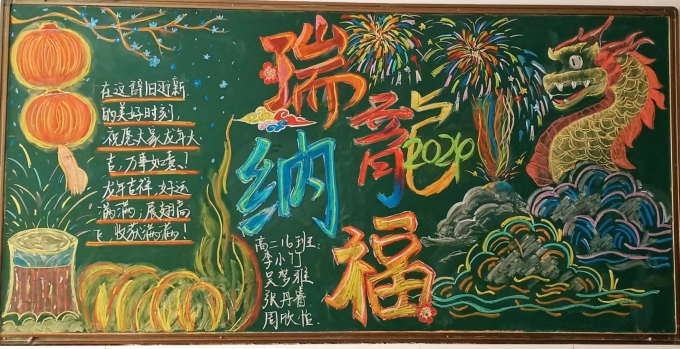 在这辞旧迎新
的美好时刻,
祝愿大家龙年大
吉,万事如意!
龙年吉祥,好运
满满,展翅高
飞,收获满满!
瑞龍
纳福
2024
高二16班:
李小竹
吴梦雅
张丹睿
周欣怡